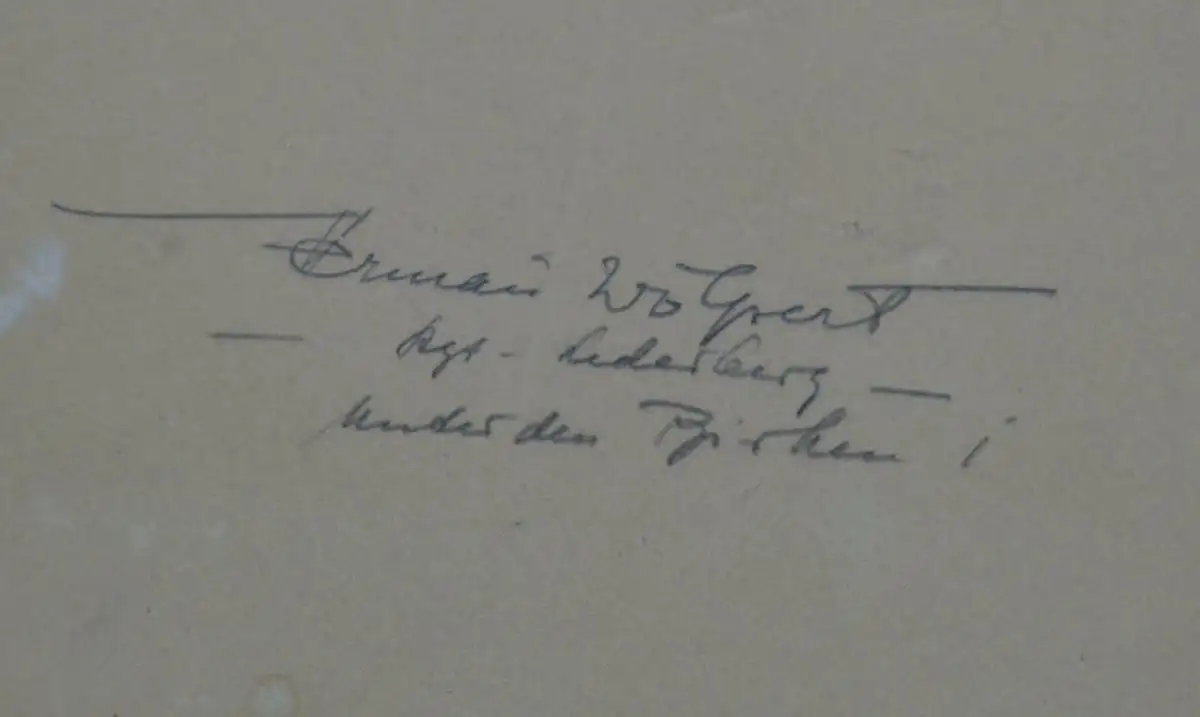 Herman Wolpert
Stgt - Lederberg
Unter den Birken 1